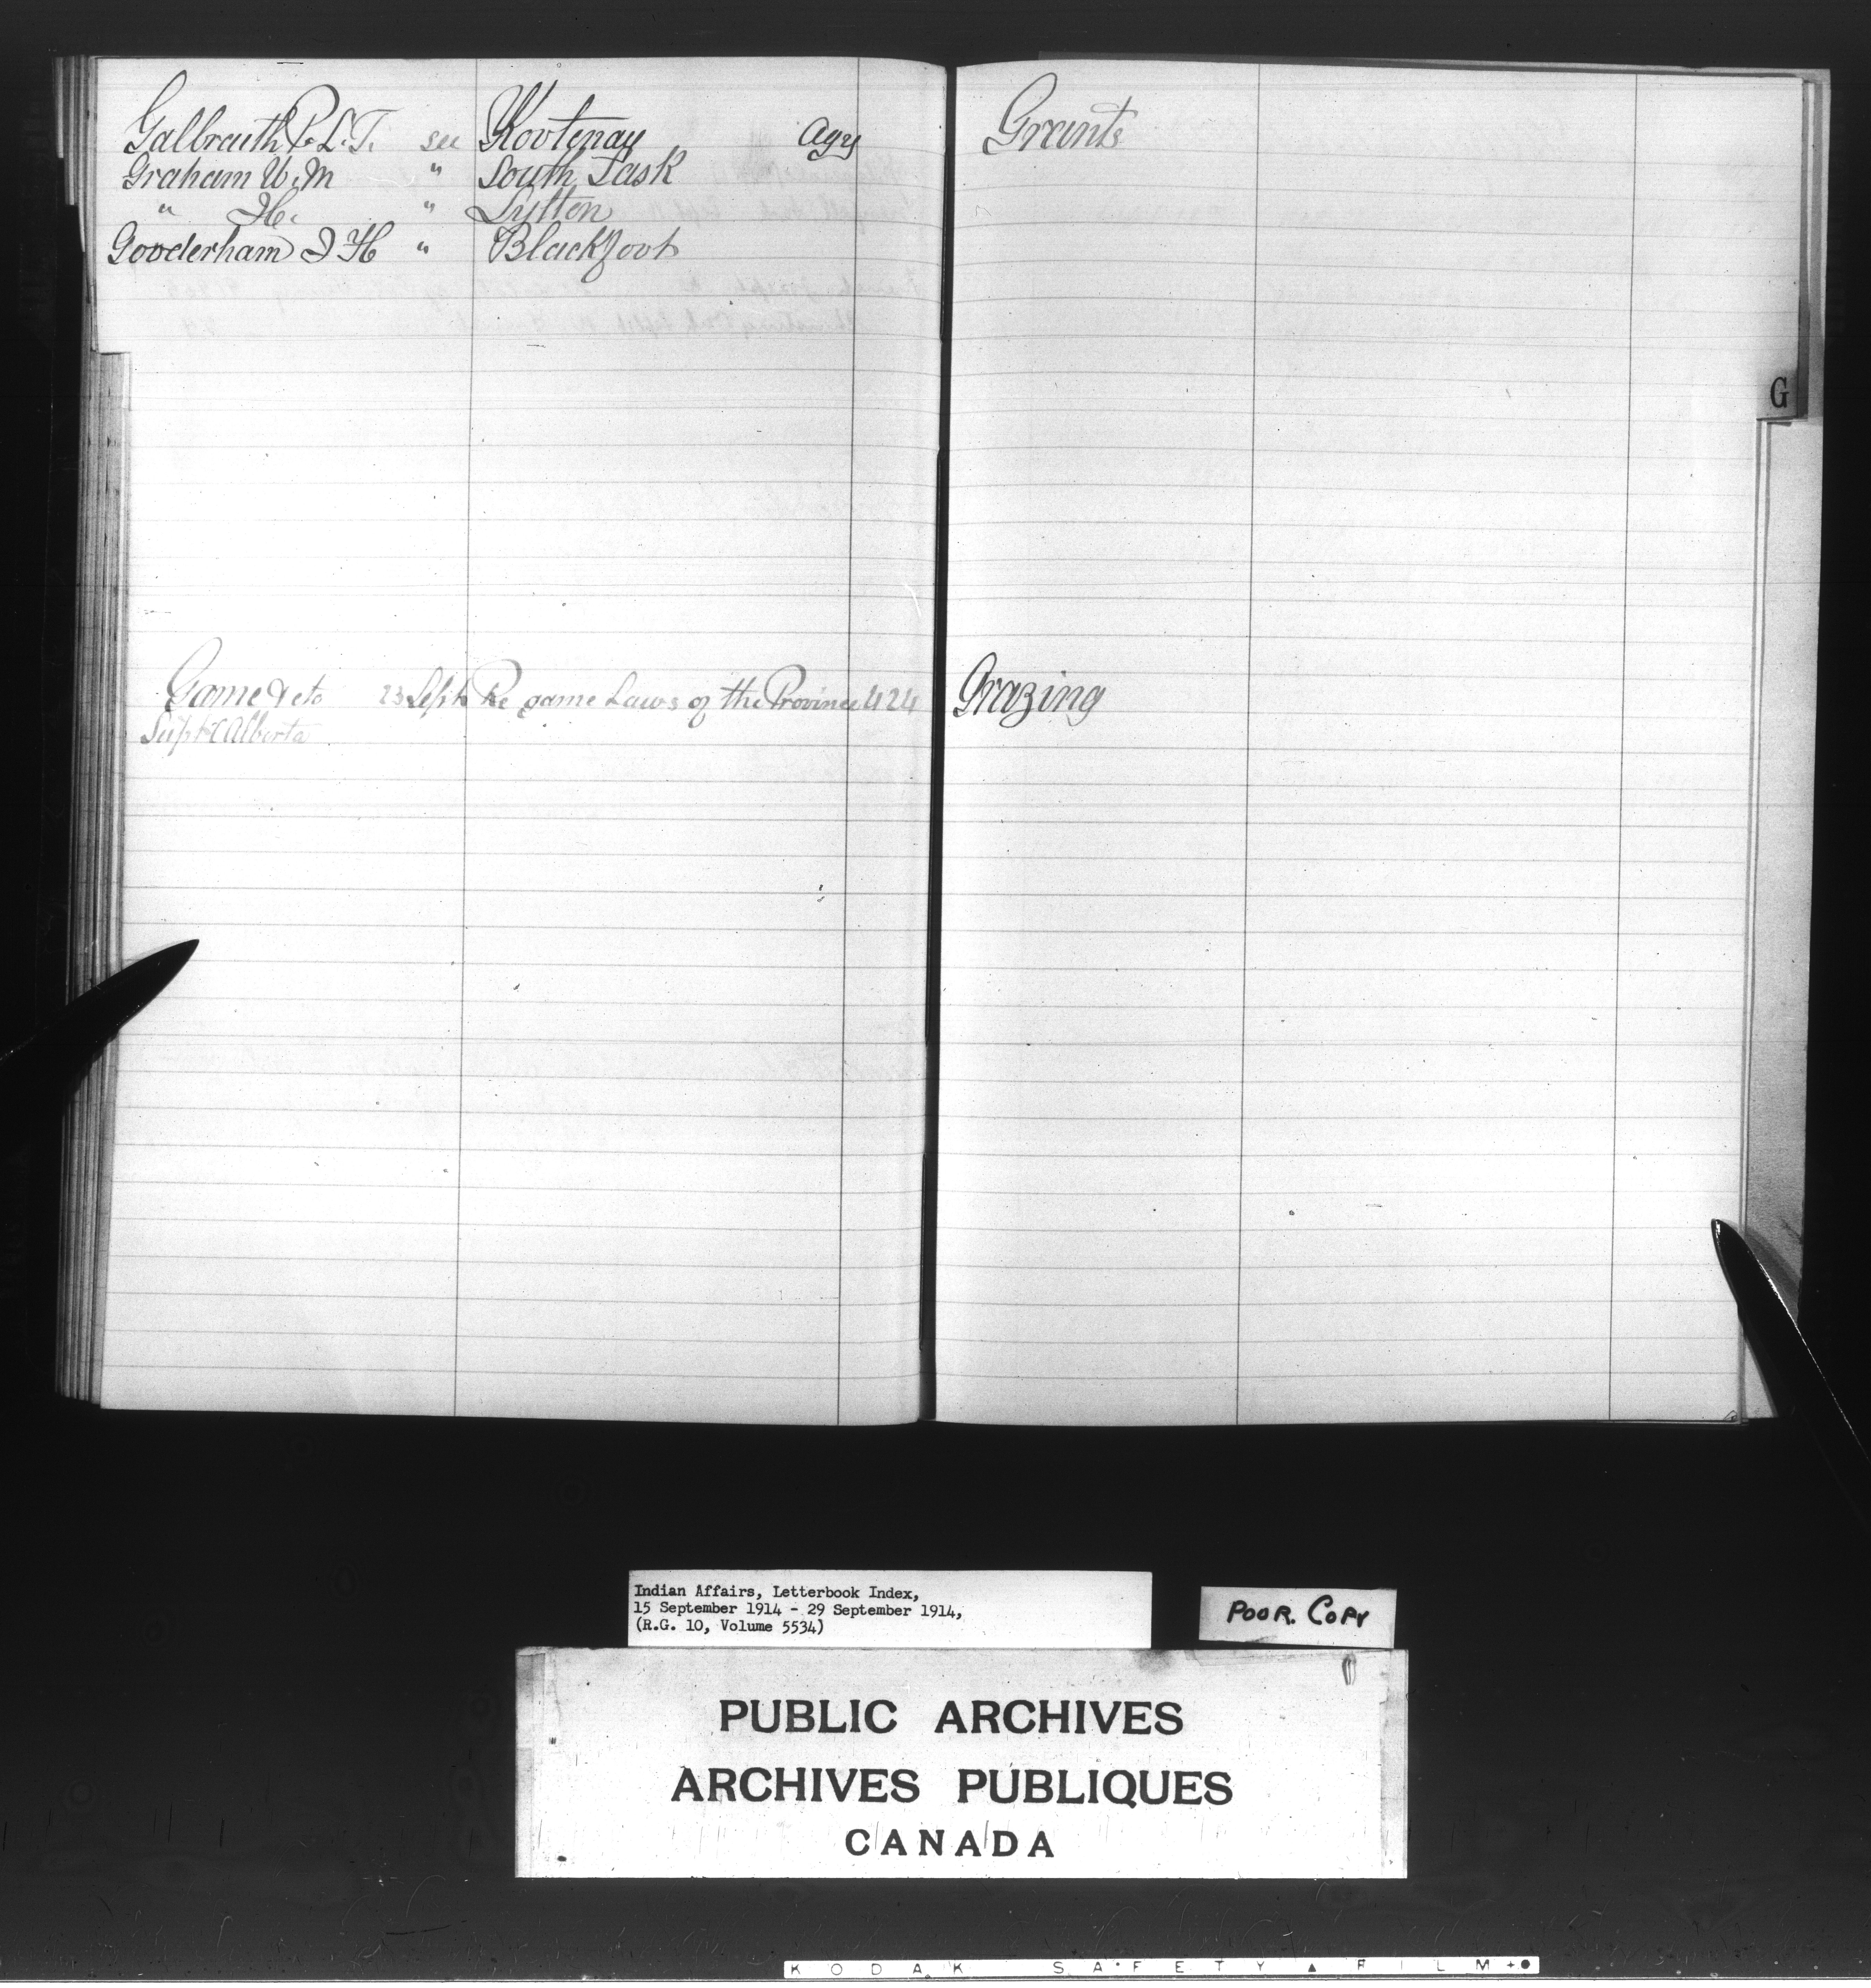 Galbraith R. L. T. see Kootenay Agy
Graham W. M " South Sask
" H. " Lytton
Gooderham J H " Blackfoot
Game &etc 23 Sept Re game Laws of the Province 424
Supt Alberta
Grants
G
Grazing
Indian Affairs, Letterbook Index,
15 September 1914 - 29 September 1914,
(R.G. 10, Volume 5534)
POOR. COPY
PUBLIC ARCHIVES
ARCHIVES PUBLIQUES
CANADA
KODAK SAFETY ▲ FILM